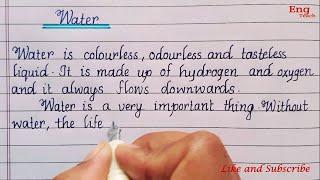 Eng
Teach
Water
Water is colourless, odourless and tasteless
liquid. It is made up of hydrogen and oxygen
and it always flows downwards.
Water is a very important thing. Without
water, the life
Like and Subscribe